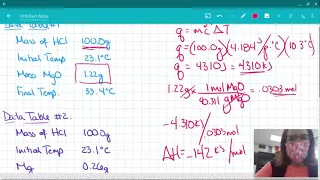 Untitled Note
Data Table #1
Mass of HCl 100.0g
Initial Temp 23.1°C
Mass MgO 1.22g
Final Temp. 33.4°C
Data Table #2:
Mass of HCl 100.0g
Initial Temp 23.1°C
Mg 0.26g
q = mc ΔT
q = (100.0g)(4.184 J/g·°C)(10.3°C)
q = 4310J = 4310KJ
1.22g × 1 mol MgO / 40.311 g MgO = .0303 mol
-4.310KJ / .0303 mol
ΔH = -142 KJ/mol